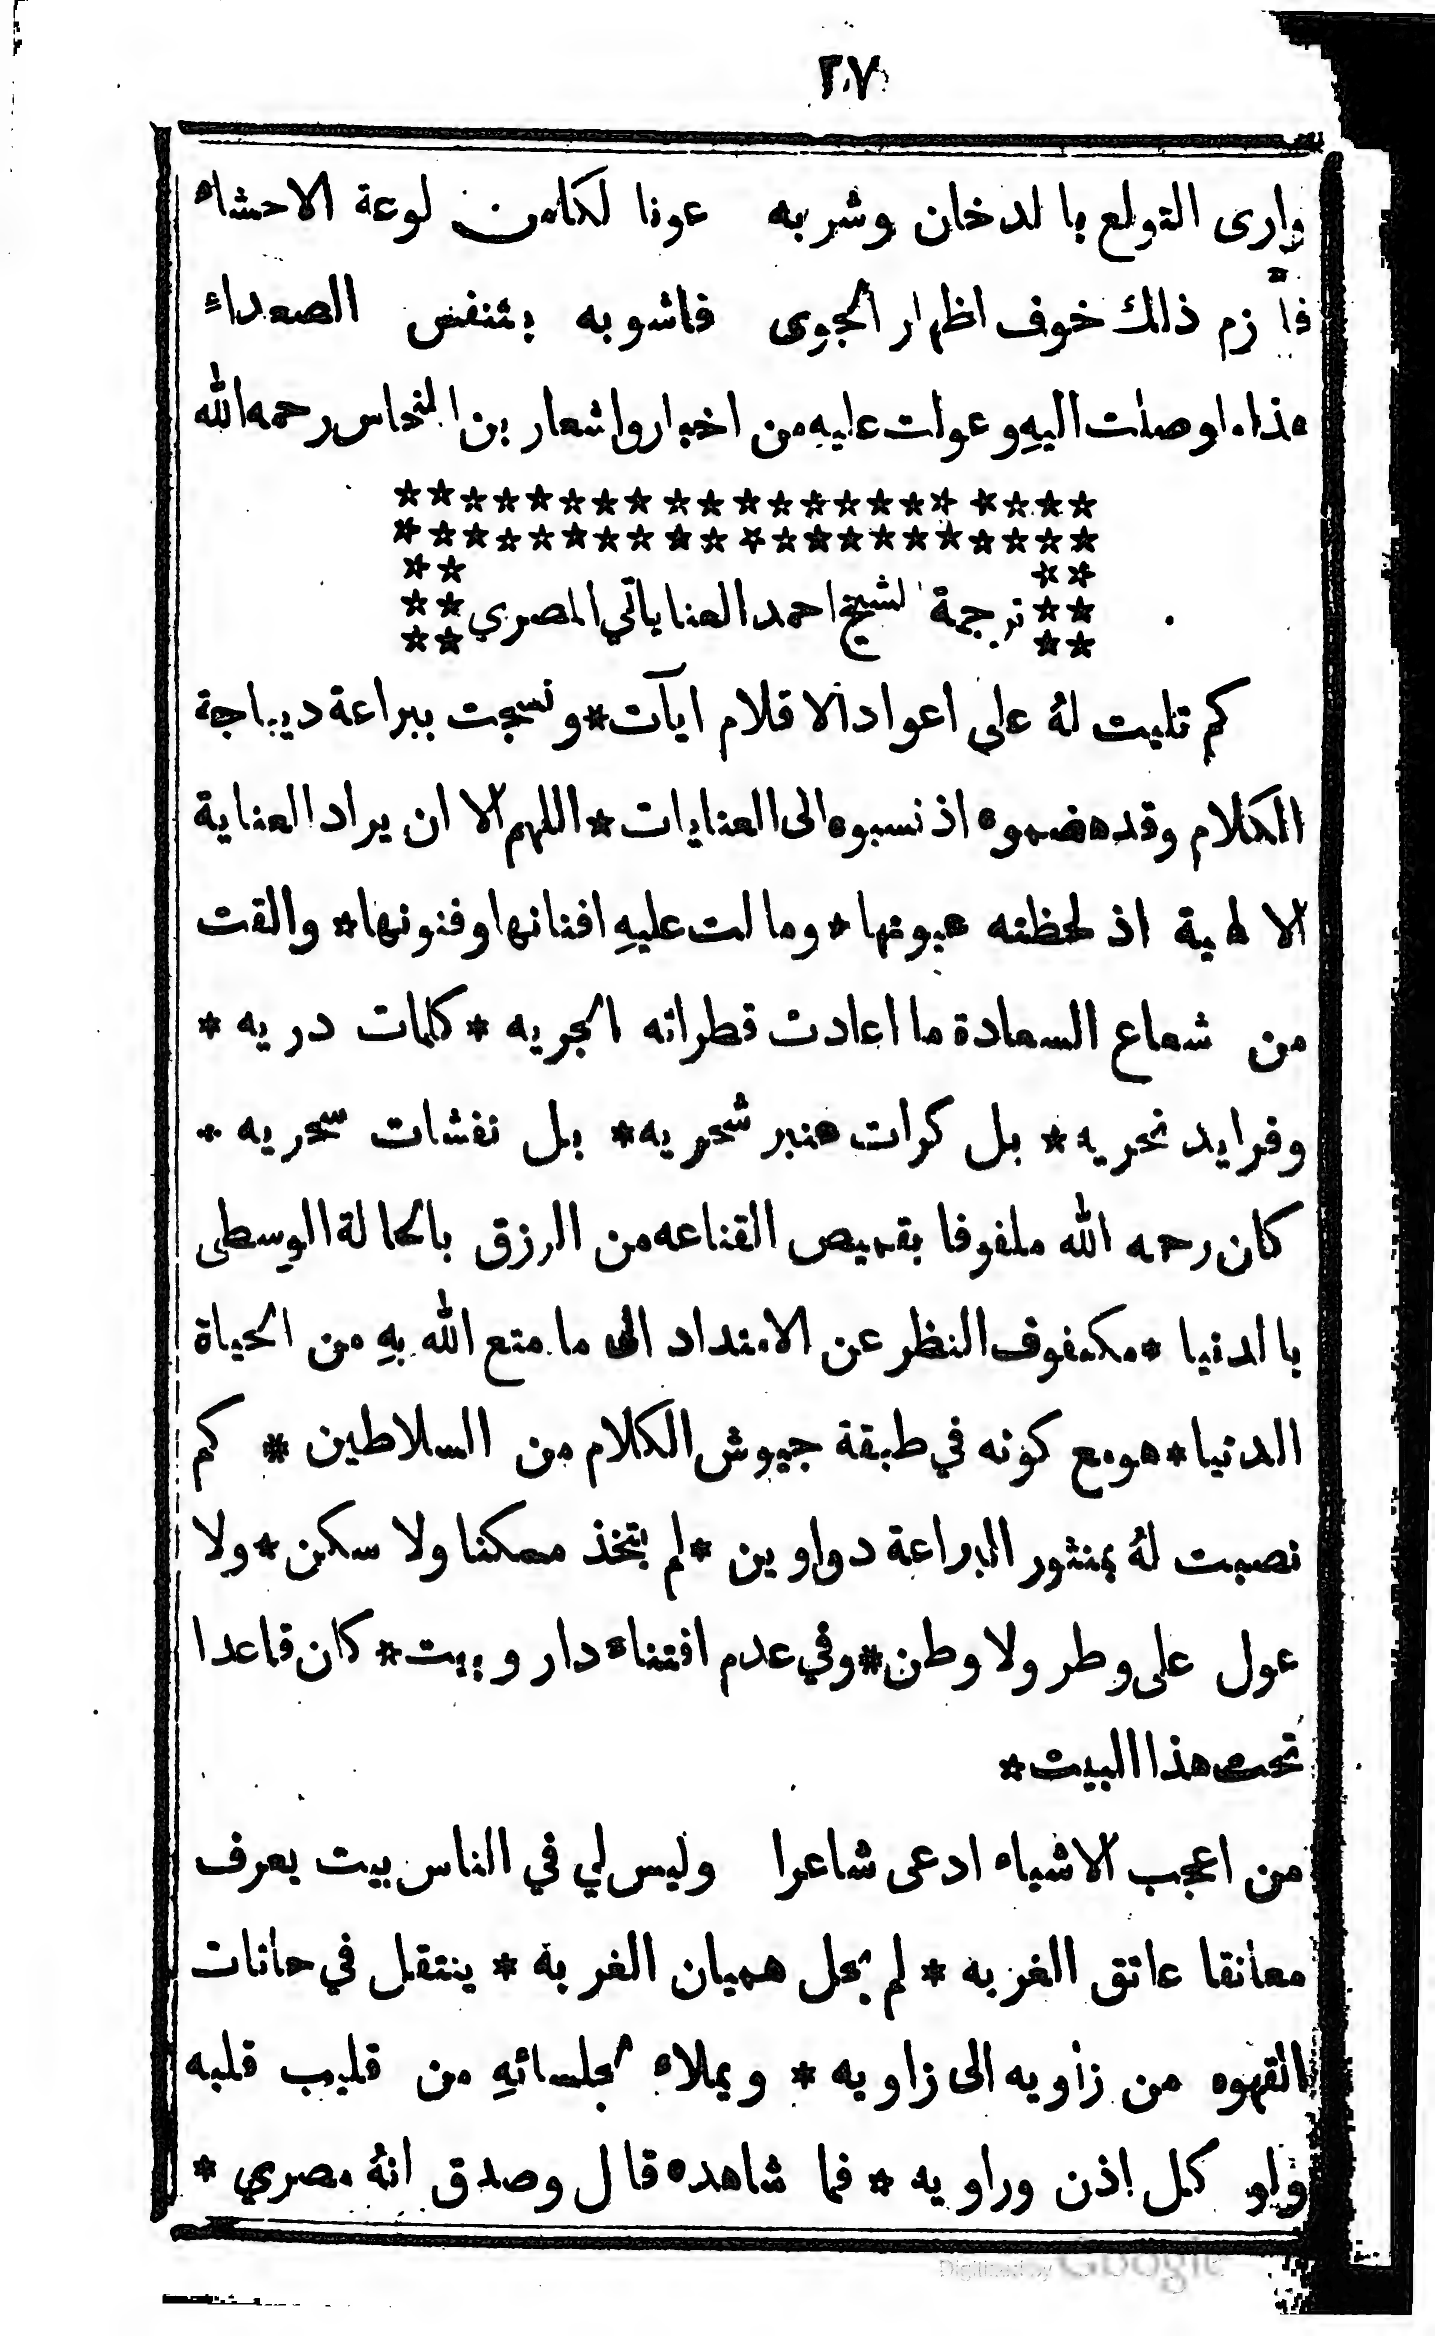 ٢٠٧
وارى التولع بالدخان وشربه عونا لكامن لوعة الاحشاء
فألازم ذلك خوف اظهار الجوى فاشوبه بتنفس الصعداء
هذا ما وصلت اليهِ وعولت عليهِ من اخبار واشعار بن النحاس رحمه الله
ترجمة الشيخ احمد العناياتي المصري
كم تليت لهُ على اعواد الاقلام ايآت * ونسجت ببراعة ديباجة
الكلام وقد هضموه اذ نسبوه الى العنايات * اللهم الا ان يراد العناية
الالهية اذ لحظته عيونها * ومالت عليهِ افنانها وفنونها * والقت
من شعاع السعادة ما اعادت قطراته الجريه * كلمات دريه *
وفرايد نحريه * بل كرات عنبر شحريه * بل نفثات سحريه *
كان رحمه الله ملفوفا بقميص القناعه من الرزق بالحالة الوسطى
بالدنيا * مكفوف النظر عن الامتداد الى ما متع الله بهِ من الحياة
الدنيا * هو مع كونه في طبقة جيوش الكلام من السلاطين * كم
نصبت لهُ بمنثور البراعة دواوين * لم يتخذ مسكنا ولا سكن * ولا
عول على وطر ولا وطن * وفي عدم اقتناء دار وبيت * كان قاعدا
تحت هذا البيت *
من اعجب الاشياء ادعى شاعرا وليس لي في الناس بيت يعرف
معانقا عاتق الغربه * لم يحل هميان الغربة * ينتقل في حانات
القهوه من زاويه الى زاويه * ويملاء لجلسائهِ من قليب قلبه
ولو كل اذن وراويه * فما شاهده قال وصدق انهُ مصري *
Digitized by Google